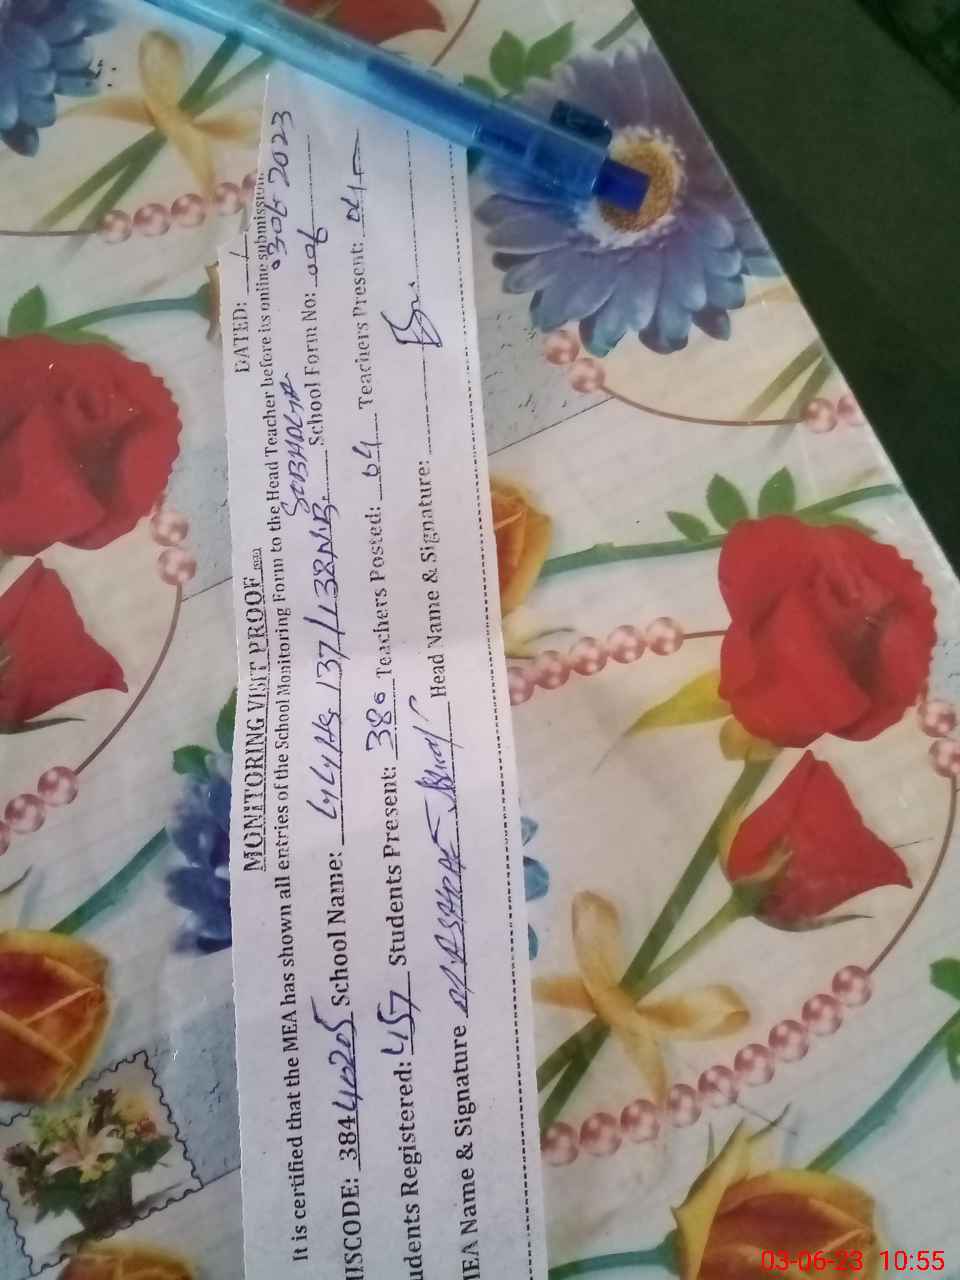 DATED: /
MONITORING VISIT PROOF
It is certified that the MEA has shown all entries of the School Monitoring Form to the Head Teacher before its online submission.
03-06-2023
ISCODE: 38440205 School Name: 137/138NB School Form No: 006
udents Registered: 457 Students Present: 380 Teachers Posted: 04 Teachers Present: 04
EA Name & Signature Head Name & Signature:
03-06-23 10:55